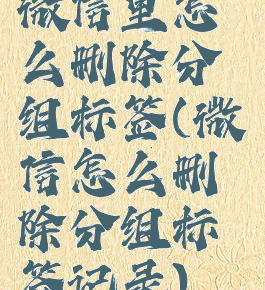 微信里怎
么删除分
组标签(微
信怎么删
除分组标
签记录)